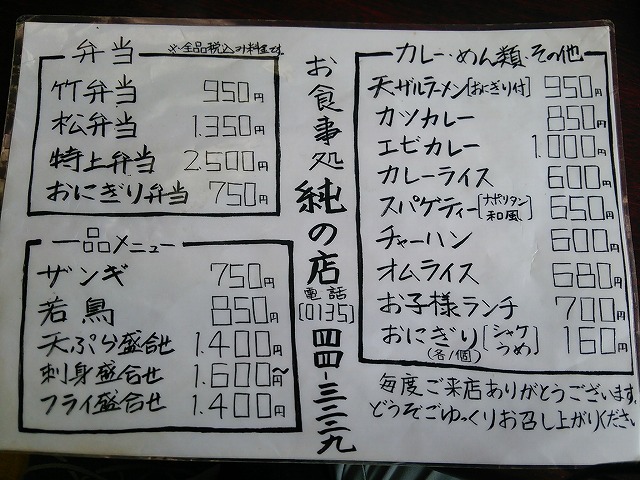 弁当
※全品税込み料金です。
竹弁当 950円
松弁当 1.350円
特上弁当 2.500円
おにぎり弁当 750円
一品メニュー
ザンギ 750円
若鳥 850円
天ぷら盛合せ 1.400円
刺身盛合せ 1.600円〜
フライ盛合せ 1.400円
お食事処 純の店
電話
[0135]
四四-三二二九
カレー・めん類・その他
天ザルラーメン[おにぎり付] 950円
カツカレー 850円
エビカレー 1.000円
カレーライス 600円
スパゲティー[ナポリタン 和風] 650円
チャーハン 600円
オムライス 680円
お子様ランチ 700円
おにぎり[シャケ うめ] 160円
(各1個)
毎度ご来店ありがとうございます。
どうぞごゆっくりお召し上がりください